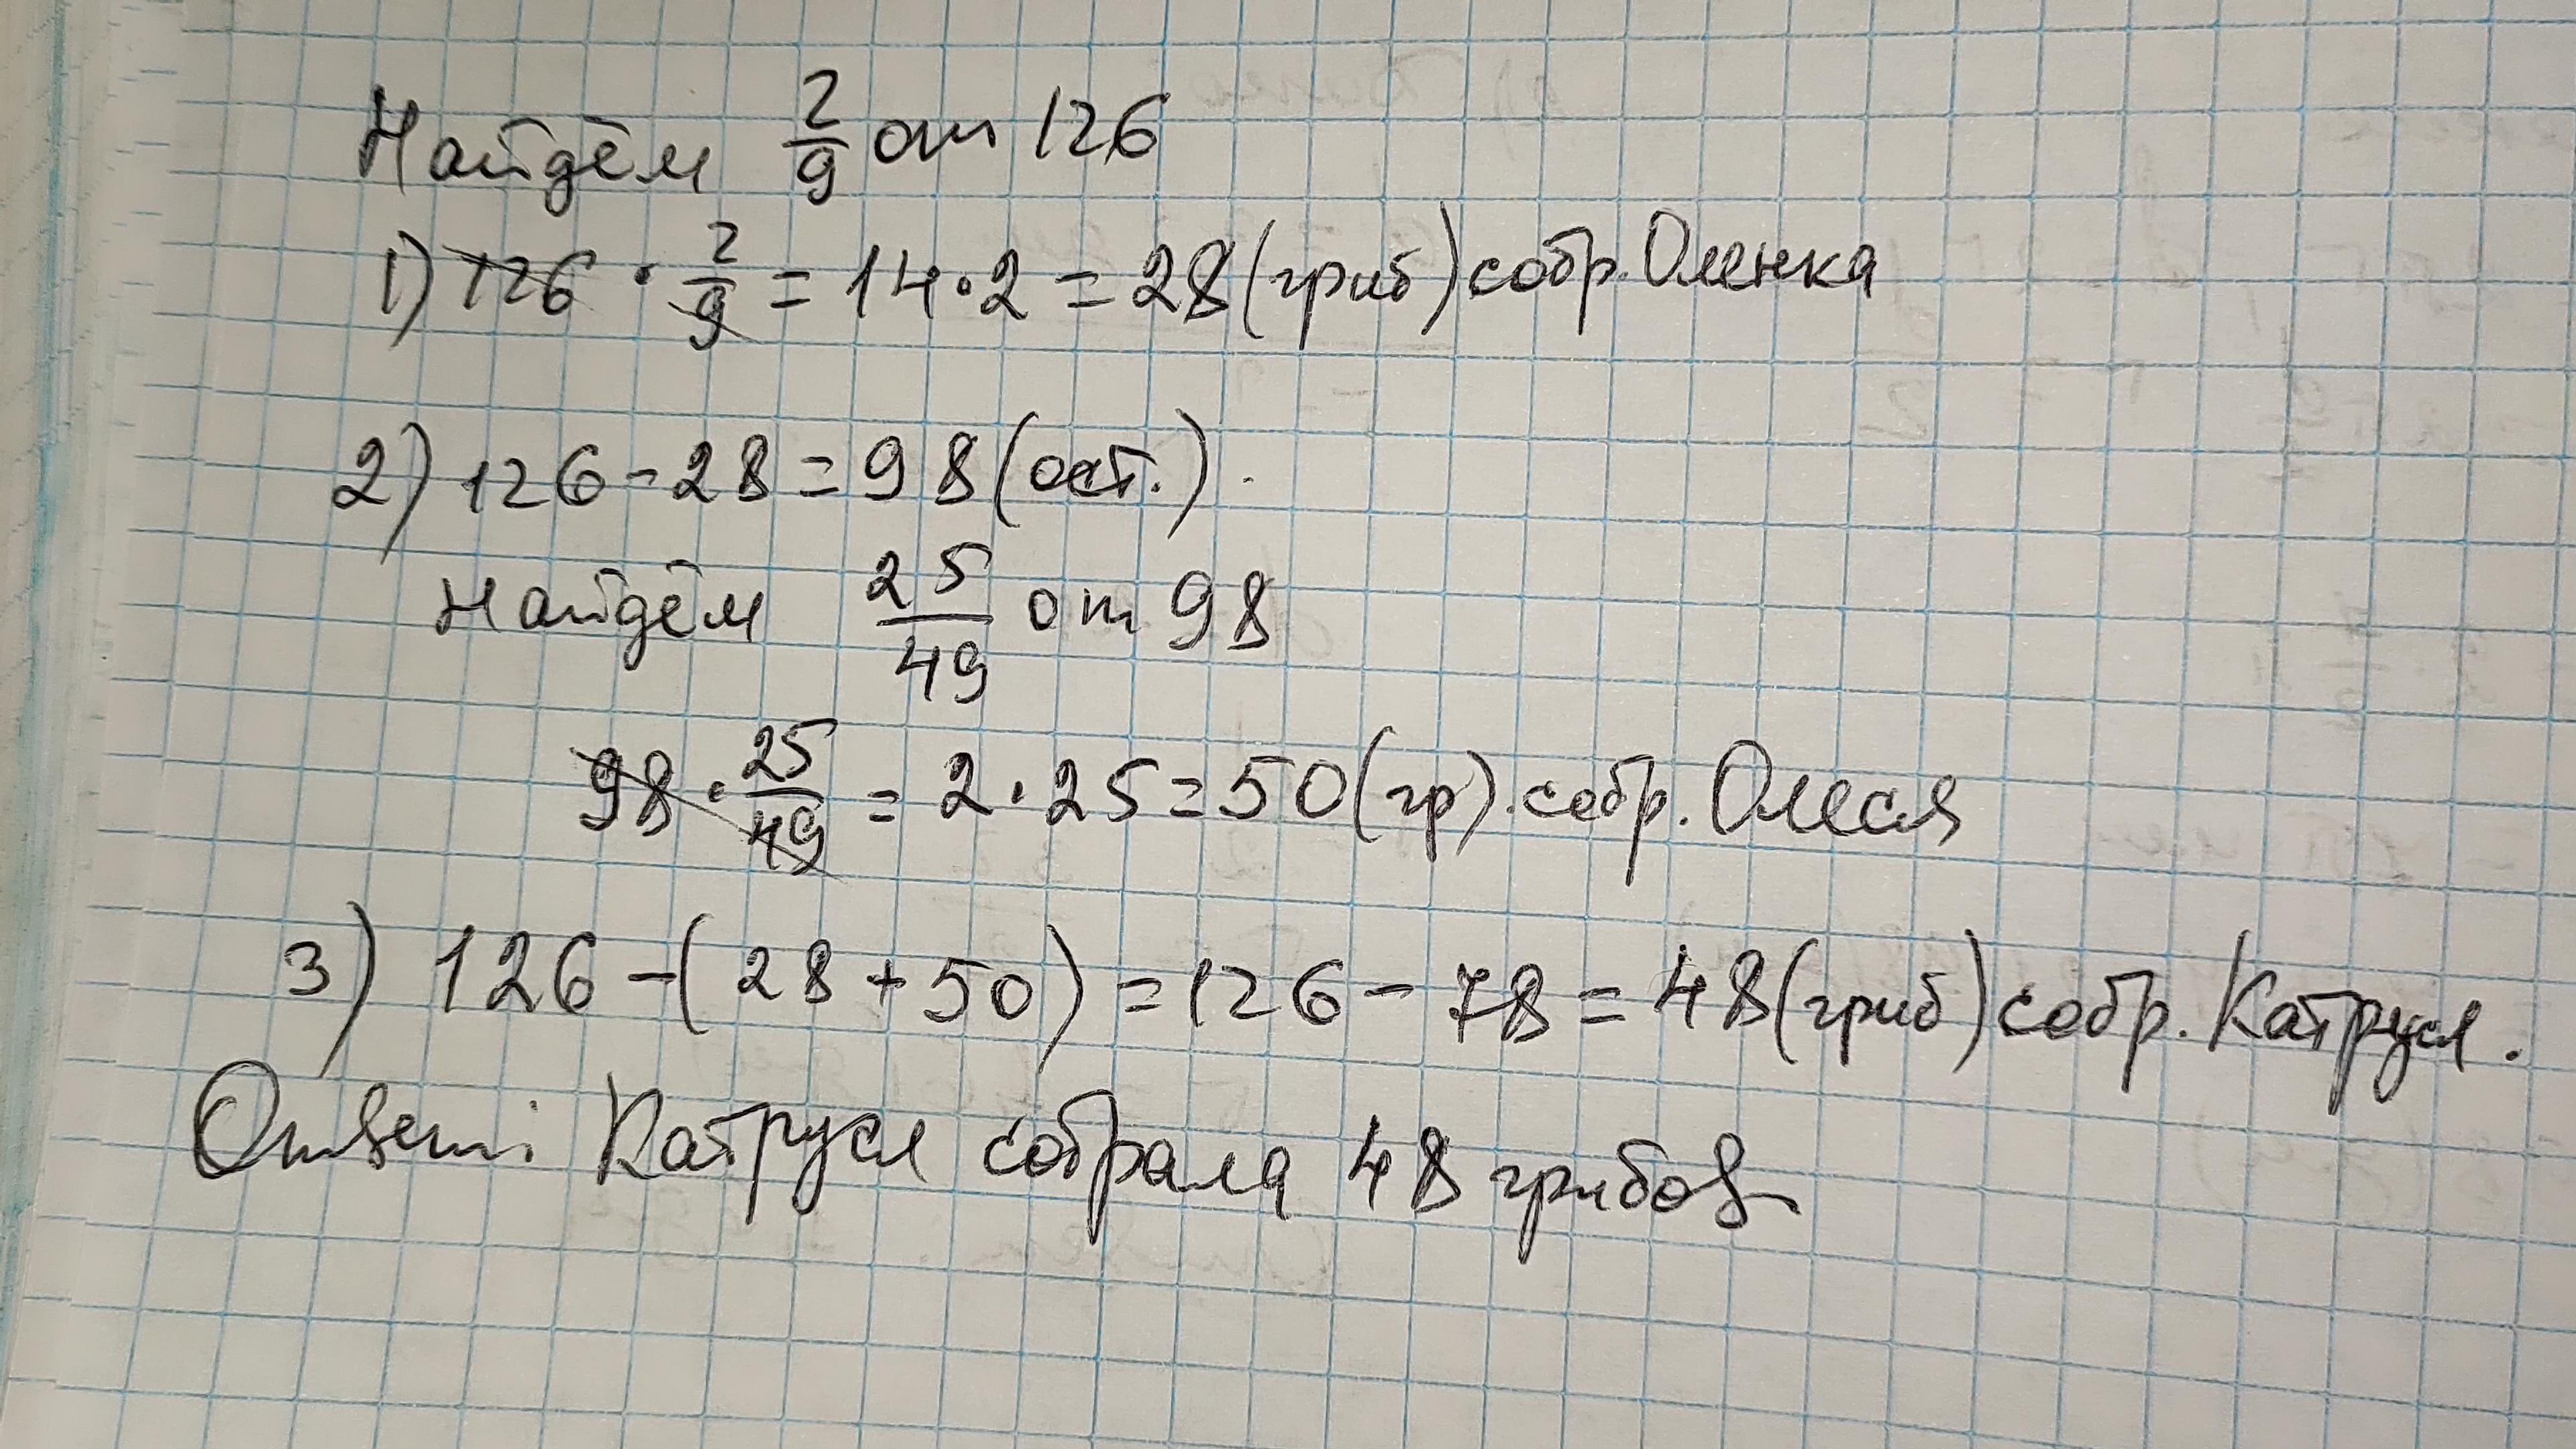 Найдём 2/9 от 126
1) 126 · 2/9 = 14·2 = 28 (гриб) собр. Оленка
2) 126 - 28 = 98 (ост.).
Найдём 25/49 от 98
98 · 25/49 = 2·25 = 50 (гр). собр. Олеся
3) 126 - (28 + 50) = 126 - 78 = 48 (гриб) собр. Катруся.
Ответ: Катруся собрала 48 грибов